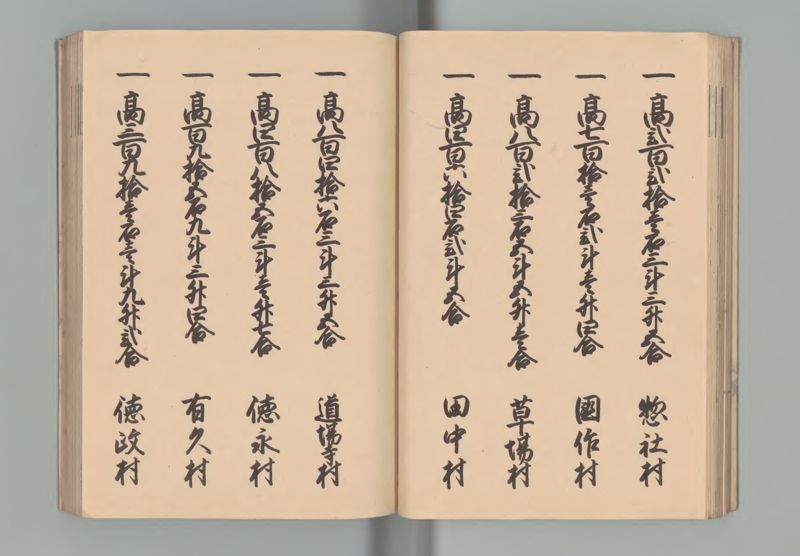 一 高弐百弐拾壱石三斗三升五合 惣社村
一 高七百拾壱石弐斗壱升四合 國作村
一 高八百弐拾三石五斗五升壱合 草場村
一 高四百六拾四石弐斗五合 田中村
一 高八百四拾六石三斗三升五合 道場寺村
一 高四百八拾五石三斗壱升七合 徳永村
一 高百九拾五石九斗三升四合 有久村
一 高三百九拾壱石壱斗九升弐合 徳政村